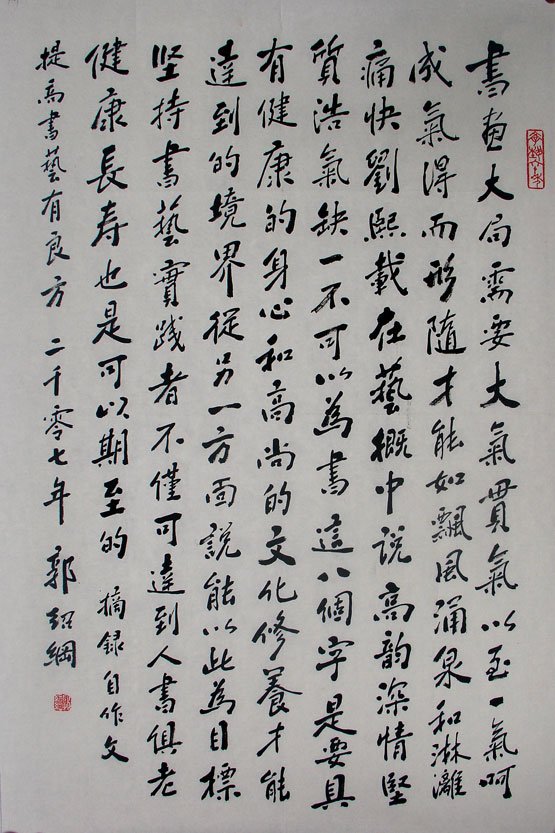 書畫大局需要大氣貫氣以至一氣呵
成氣得而形隨才能如飄風涌泉和淋灕
痛快劉熙載在藝概中說高韵深情堅
質浩氣缺一不可以為書這八個字是要具
有健康的身心和高尚的文化修養才能
達到的境界從另一方面說能以此為目標
坚持書藝實践者不僅可達到人書俱老
健康長寿也是可以期至的 摘録自作文
提高書藝有良方 二千零七年 郭紹綱